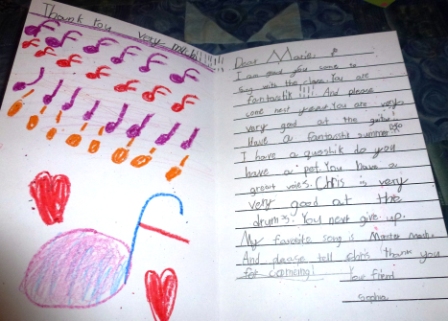 Thank You very much!!!!!!
Dear Marie,
I am glad you come to
sing with the class. You are
fantastik!!!! And please
come next year You are very
very good at the guitar
Have a fantastit summer
I have a queshtik do you
have a pet. You have a
great voies. Chris is very
very good at the
drums. You next give up.
My favorite song is
And please tell Chris thank you
for comeing!
love friend
Sophia